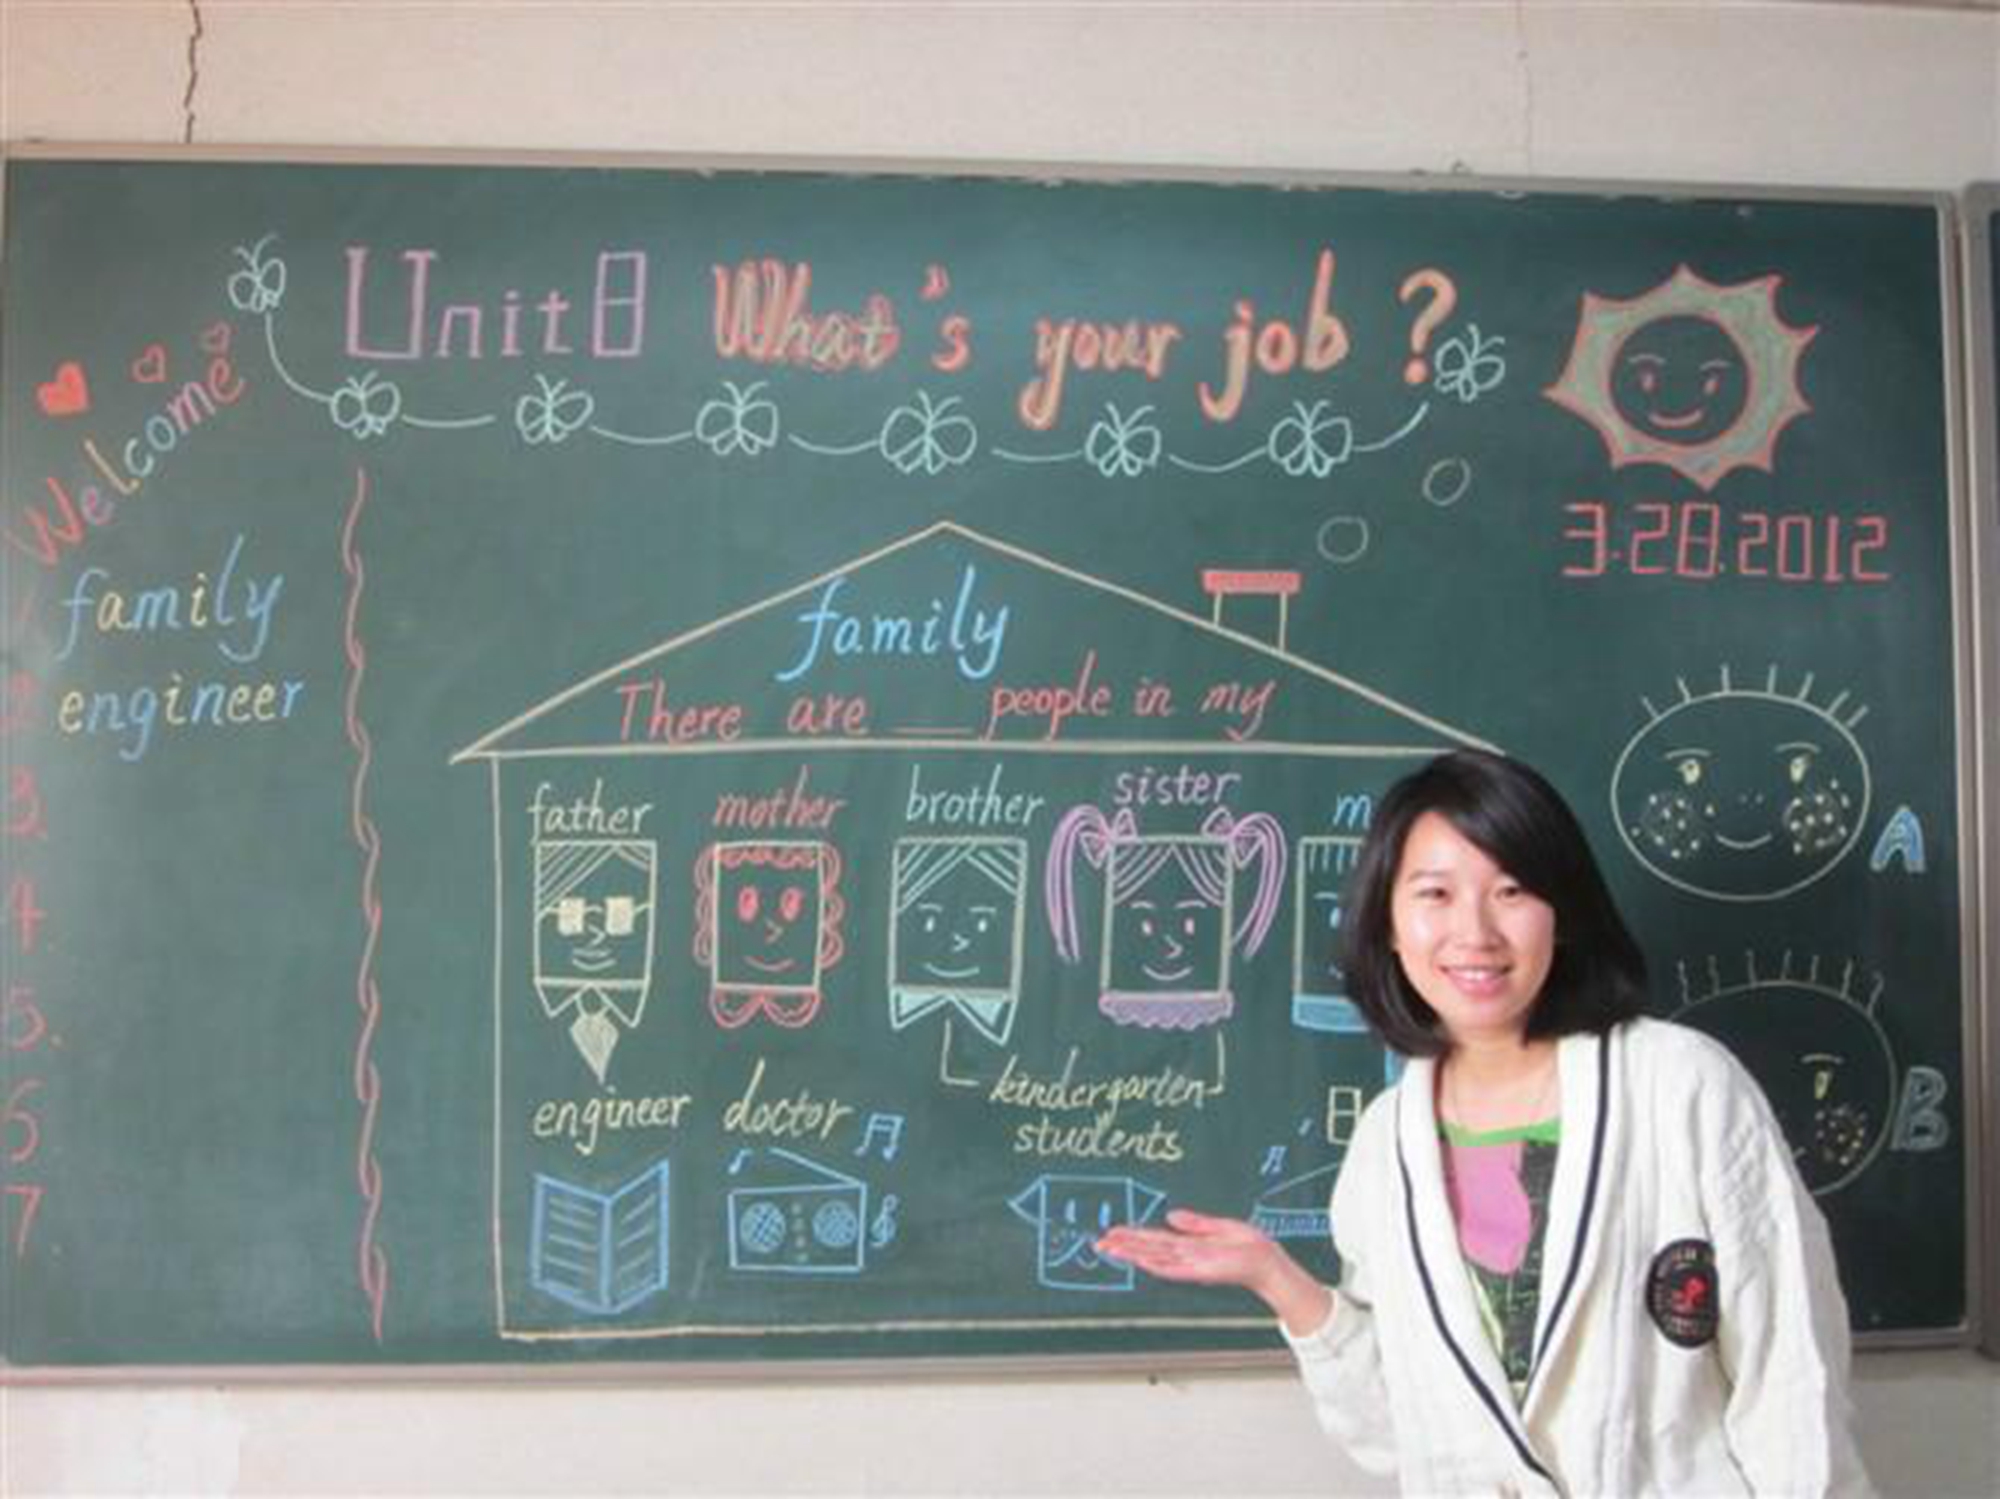 Welcome
Unit 8 What's your job ?
3.28.2012
family
engineer
3.
4.
5.
6
7.
family
There are ___ people in my
father mother brother sister
engineer doctor kindergarten
students
A
B